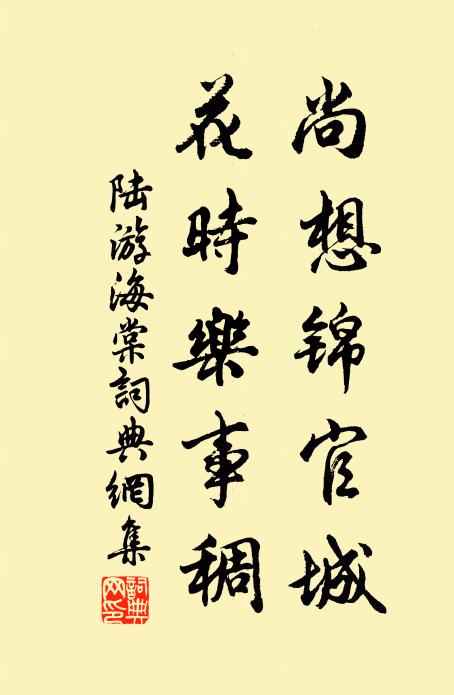 尚想錦官城
花時樂事稠
陆游海棠詞典網集
詞典
网印